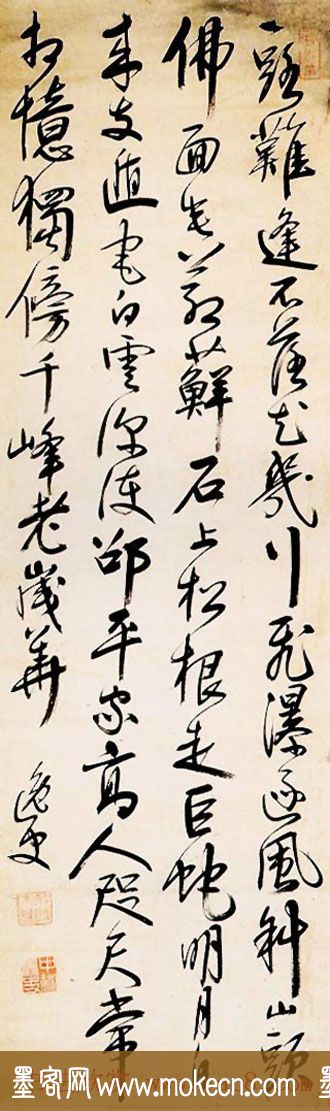 一路難逢不落花幾行飛瀑逐風斜山頭
佛面生蒼蘚石上松根走巨蛇明月自
來支遁宅白雲深護邵平家高人咫尺常
相憶獨傍千峰老歲華
逸史
墨客网 www.mokecn.com